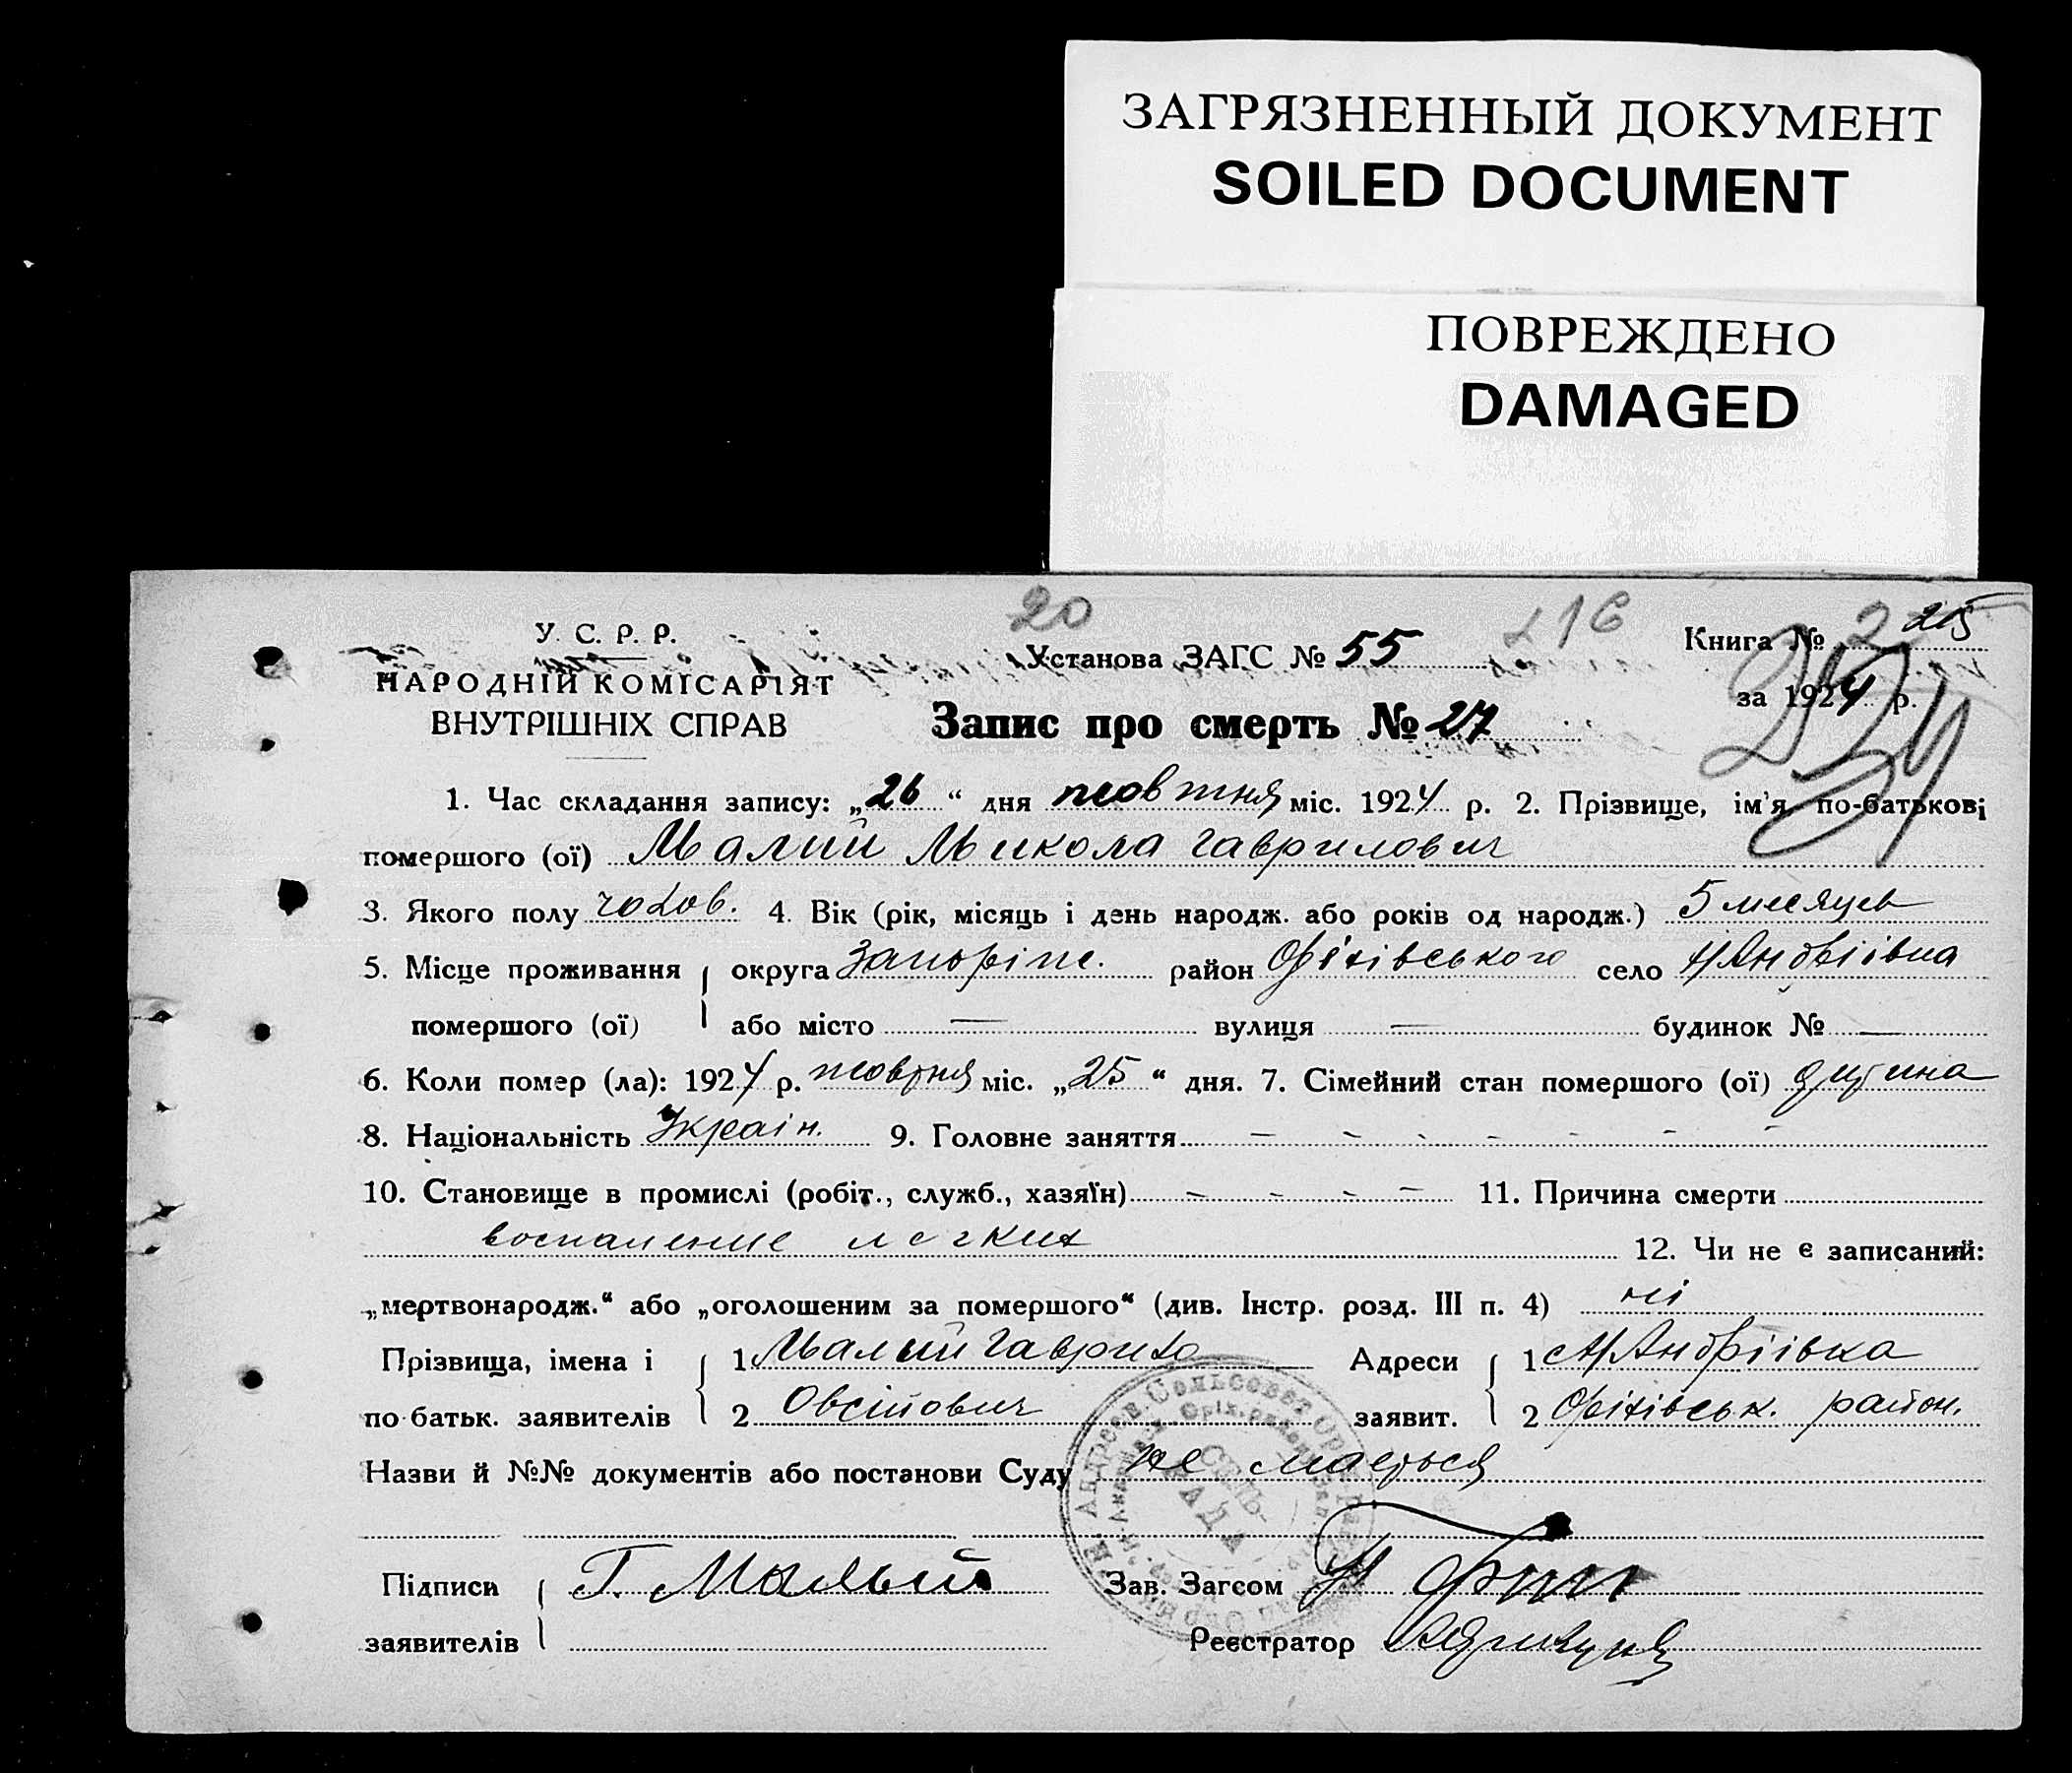 ЗАГРЯЗНЕННЫЙ ДОКУМЕНТ
SOILED DOCUMENT
ПОВРЕЖДЕНО
DAMAGED
20
У. С. Р. Р.
НАРОДНІЙ КОМІСАРІЯТ
ВНУТРІШНІХ СПРАВ
Установа ЗАГС № 55
Книга № 2 25
за 1924 р.
Запис про смерть № 27
1. Час складання запису: „26“ дня жовтня міс. 1924 р. 2. Прізвище, ім'я, по-батькові
помершого (ої) Малий Микола Гаврилович
3. Якого полу чолов. 4. Вік (рік, місяць і день народж. або років од народж.) 5 месяцев
5. Місце проживання округа Запоріж. район Оріхівського село Н/Андріівка
помершого (ої) або місто — вулиця — будинок № —
6. Коли помер (ла): 1924 р. жовтня міс. „25“ дня. 7. Сімейний стан помершого (ої) дитина
8. Національність Украін. 9. Головне заняття - - - - - - -
10. Становище в промислі (робіт., служб., хазяїн) - - - - 11. Причина смерти
воспаление легких 12. Чи не є записаний:
„мертвонародж.“ або „оголошеним за помершого“ (див. Інстр. розд. III п. 4) ні
Прізвища, імена і 1 Малий Гаврило Адреси 1 Н/Андріівка
по батьк. заявителів 2 Овсійович заявит. 2 Оріхівськ. район.
Назви й №№ документів або постанови Суду не мається
Підписи Г. Малый Зав. Загсом
заявителів Реєстратор